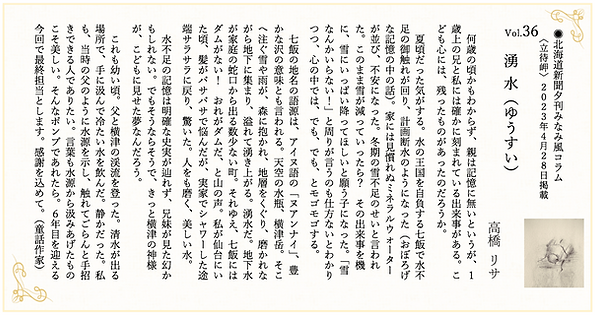 ◉北海道新聞夕刊みなみ風コラム
〈立待岬〉2023年4月28日掲載
Vol.36
湧 水（ゆうすい）
高橋 リサ
何歳の頃かもわからず、親は記憶に無いというが、1
歳上の兄と私には確かに刻まれている出来事がある。こ
ども心には、残ったものがあったのだろうか。
夏頃だった気がする。水の王国を自負する七飯で水不
足の御触れが回り、計画断水のようになった（おぼろげ
な記憶の中の話）。家には見慣れぬミネラルウォーター
が並び、不安になった。冬期の雪不足のせいと言われ
た。このまま雪が減っていったら？ その出来事を機
に、雪にいっぱい降ってほしいと願う子になった。「雪
なんかいらない！」と周りが言うのも仕方ないとわかり
つつ、心の中では、でも、でも、とモゴモゴする。
七飯の地名の語源は、アイヌ語の「ヌアンナイ」、豊
かな沢の意味とも言われる。天空の水瓶、横津岳。そこ
へ注ぐ雪や雨が、森に抱かれ、地層をくぐり、磨かれな
がら地下に集まり、溢れて湧き上がる。湧水だ。地下水
が家庭の蛇口から出る数少ない町。それゆえ、七飯には
ダムがない！ おれがダムだ、と山の声。私が仙台にい
た頃、髪がパサパサで悩んだが、実家でシャワーした途
端サラサラに戻り、驚いた。人をも磨く、美しい水。
水不足の記憶は明確な史実が辿れず、兄妹が見た幻か
もしれない。でもそうならそうで、きっと横津の神様
が、こどもに見せた夢なんだろう。
これも幼い頃。父と横津の渓流を登った。清水が出る
場所で、手に汲んで冷たい水を飲んだ。静かだった。私
も、当時の父のように水源を示し、触れてごらんと手招
きできる人でありたい。言葉も水源から汲みあげたもの
こそ美しい。そんなポンプであれたら。6年目を迎える
今回で最終担当とします。感謝を込めて。（童話作家）